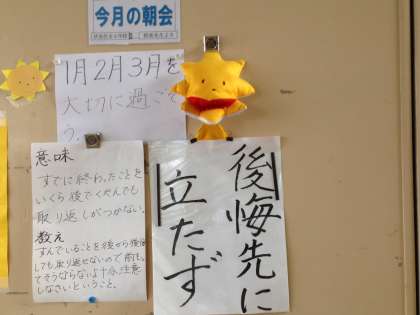 今月の朝会
1月2月3月を
大切に過ごそ
う。
後悔先に
立たず
意味
すでに終わったことを
いくら後でくやんでも
取り返しがつかない。
教え
すんでいることを後から後悔
しても取り返せないので前もっ
てそうならないよう十分注意
しなさいということ。